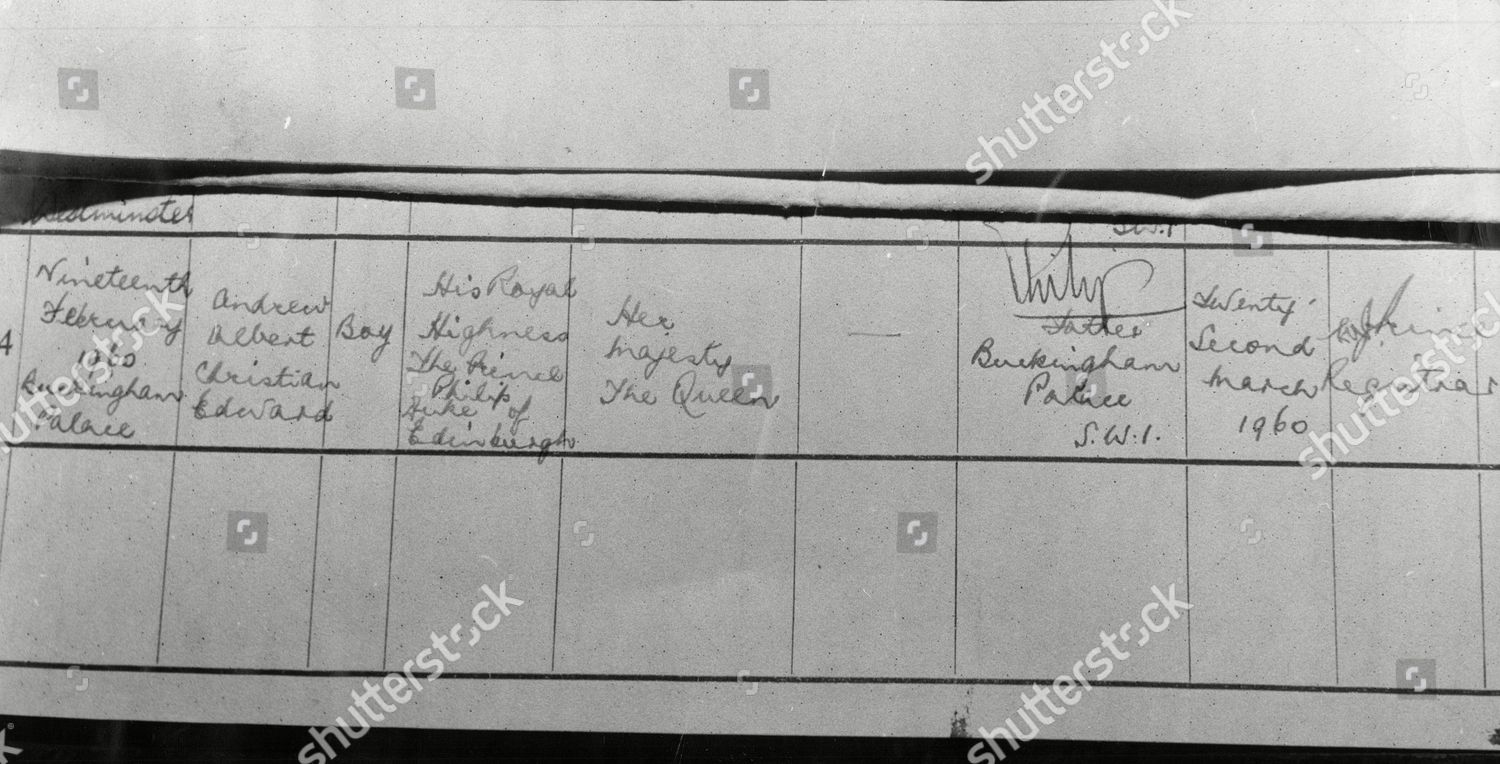 Westminster
S.W.1
4
Nineteenth
February
1960
Buckingham
Palace
Andrew
Albert
Christian
Edward
Boy
His Royal
Highness
The Prince
Philip
Duke of
Edinburgh
Her
Majesty
The Queen
—
Philip
Father
Buckingham
Palace
S.W.1.
Twenty
Second
March
1960
Registrar
shutterstock
shutterstock
shutterstock
shutterstock
shutterstock